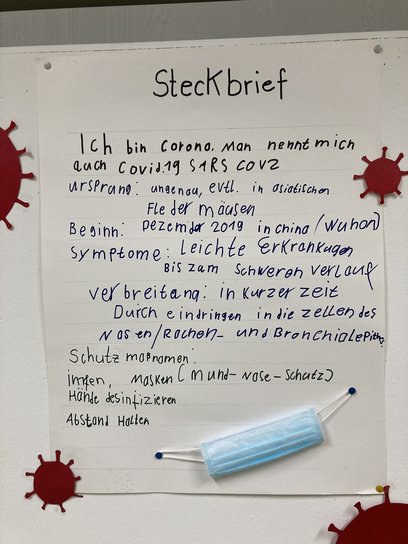 Steckbrief
Ich bin Corona. Man nennt mich
auch Covid.19 SARS COV2
ursprang: ungenau, evtl. in asiatischen
Fledermäusen
Beginn: Dezember 2019 in china (Wuhan)
Symptome: Leichte Erkrankugen
Bis zum Schweren verlauf
verbreitang: in Kurzer zeit
Durch eindringen in die zellen des
Nasen/Rachen- und BronchialePithe
Schutz maßnamen:
impfen, Masken (Mund-Nase-Schutz)
Hände desinfizieren
Abstand Halten